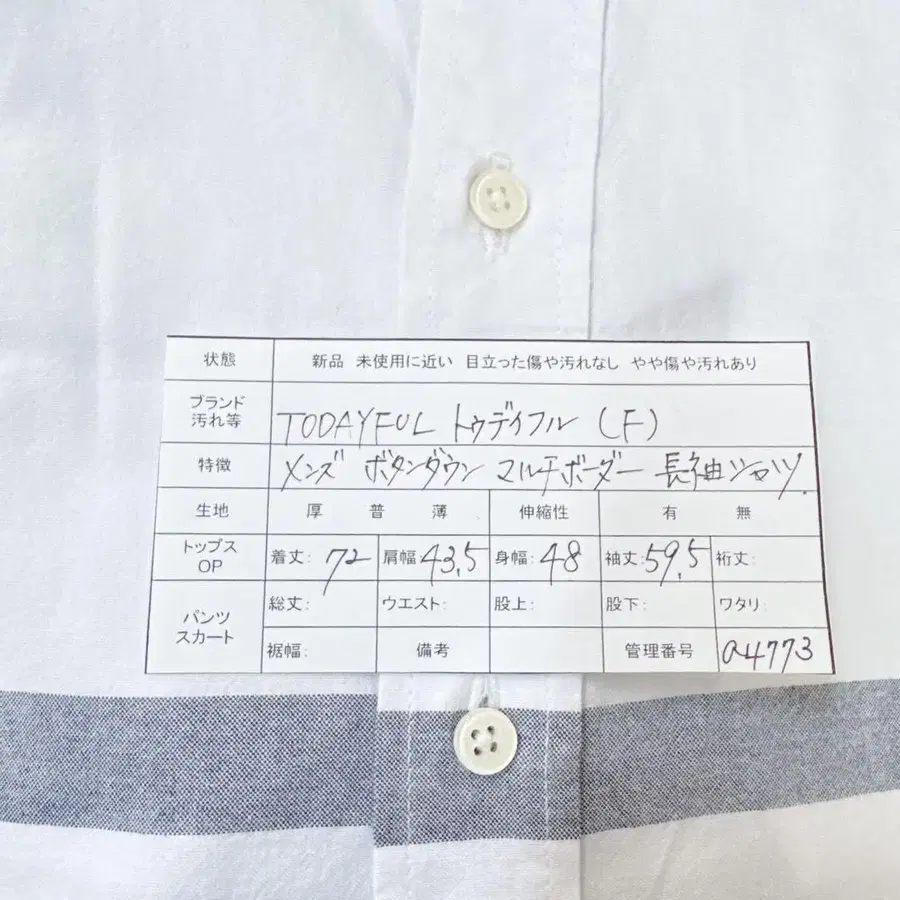 状態 新品 未使用に近い 目立った傷や汚れなし やや傷や汚れあり
ブランド
汚れ等 TODAYFUL トゥデイフル (F)
特徴 メンズ ボタンダウン マルチボーダー 長袖シャツ.
生地 厚 普 薄 伸縮性 有 無
トップス
OP 着丈: 72 肩幅 43.5 身幅: 48 袖丈: 59.5 裄丈:
パンツ
スカート 総丈: ウエスト: 股上: 股下: ワタリ:
裾幅: 備考 管理番号 a4773